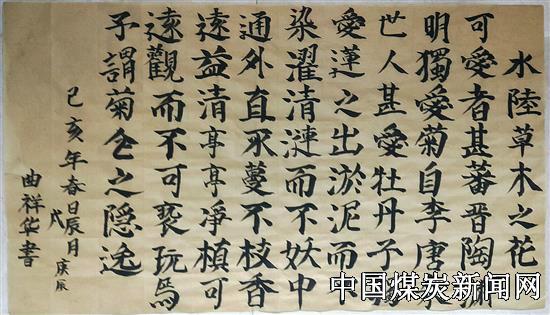 水陸草木之花
可愛者甚蕃晋陶淵
明獨愛菊自李唐来
世人甚愛牡丹予獨
愛蓮之出淤泥而不
染濯清漣而不妖中
通外直不蔓不枝香
遠益清亭亭凈植可
遠觀而不可亵玩焉
予謂菊之隐逸
己亥年春日辰月庚辰
戊
曲祥华書
中国煤炭新闻网